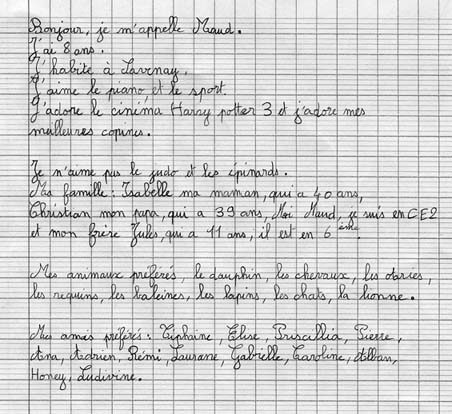 Bonjour, je m'appelle Maud.
J'ai 8 ans.
J'habite à Savenay.
J'aime le piano et le sport.
J'adore le cinéma Harry potter 3 et j'adore mes
meilleures copines.
Je n'aime pas le judo et les épinards.
Ma famille : Isabelle ma maman, qui a 40 ans,
Christian mon papa, qui a 39 ans, Moi Maud, je suis en CE2
et mon frère Jules, qui a 11 ans, il est en 6 ème.
Mes animaux préférés, le dauphin, les chevaux, les otaries,
les requins, les baleines, les lapins, les chats, la lionne.
Mes amis préférés : Tiphaine, Elise, Priscillia, Pierre,
Ana, Adrien, Rémi, Laurane, Gabrielle, Caroline, Alban,
Honey, Ludivine.